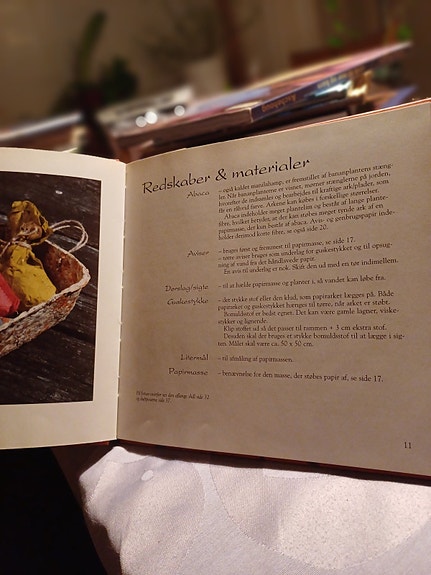 Redskaber & materialer
Abaca – også kaldet manilahamp, er fremstillet af bananplantens stæng-
ler. Når bananplanterne er visnet, rådner stænglerne på jorden,
hvorefter de indsamles og bearbejdes til kraftige ark/plader, som
får en råhvid farve. Arkene kan købes i forskellige størrelser.
Abaca indeholder meget plantelim og består af lange plante-
fibre, hvilket betyder, at der kan støbes meget tynde ark af en
papirmasse, der kun består af abaca. Avis- og genbrugspapir inde-
holder derimod korte fibre, se også side 20.
Aviser – bruges først og fremmest til papirmasse, se side 17.
– tørre aviser bruges som underlag for guskestykket og til opsug-
ning af vand fra det håndlavede papir.
Én avis til underlag er nok. Skift den ud med en tør indimellem.
Dørslag/sigte – til at hælde papirmasse og planter i, så vandet kan løbe fra.
Guskestykke – det stykke stof eller den klud, som papirarket lægges på. Både
papirarket og guskestykket hænges til tørre, når arket er støbt.
Bomuldsstof er bedst egnet. Det kan være gamle lagner, viske-
stykker og lignende.
Klip stoffet ud så det passer til rammen + 3 cm ekstra stof.
Desuden skal der bruges et stykke bomuldsstof til at lægge i sig-
ten. Målet skal være ca. 50 x 50 cm.
Litermål – til afmåling af papirmassen.
Papirmasse – benævnelse for den masse, der støbes papir af, se side 17.
11